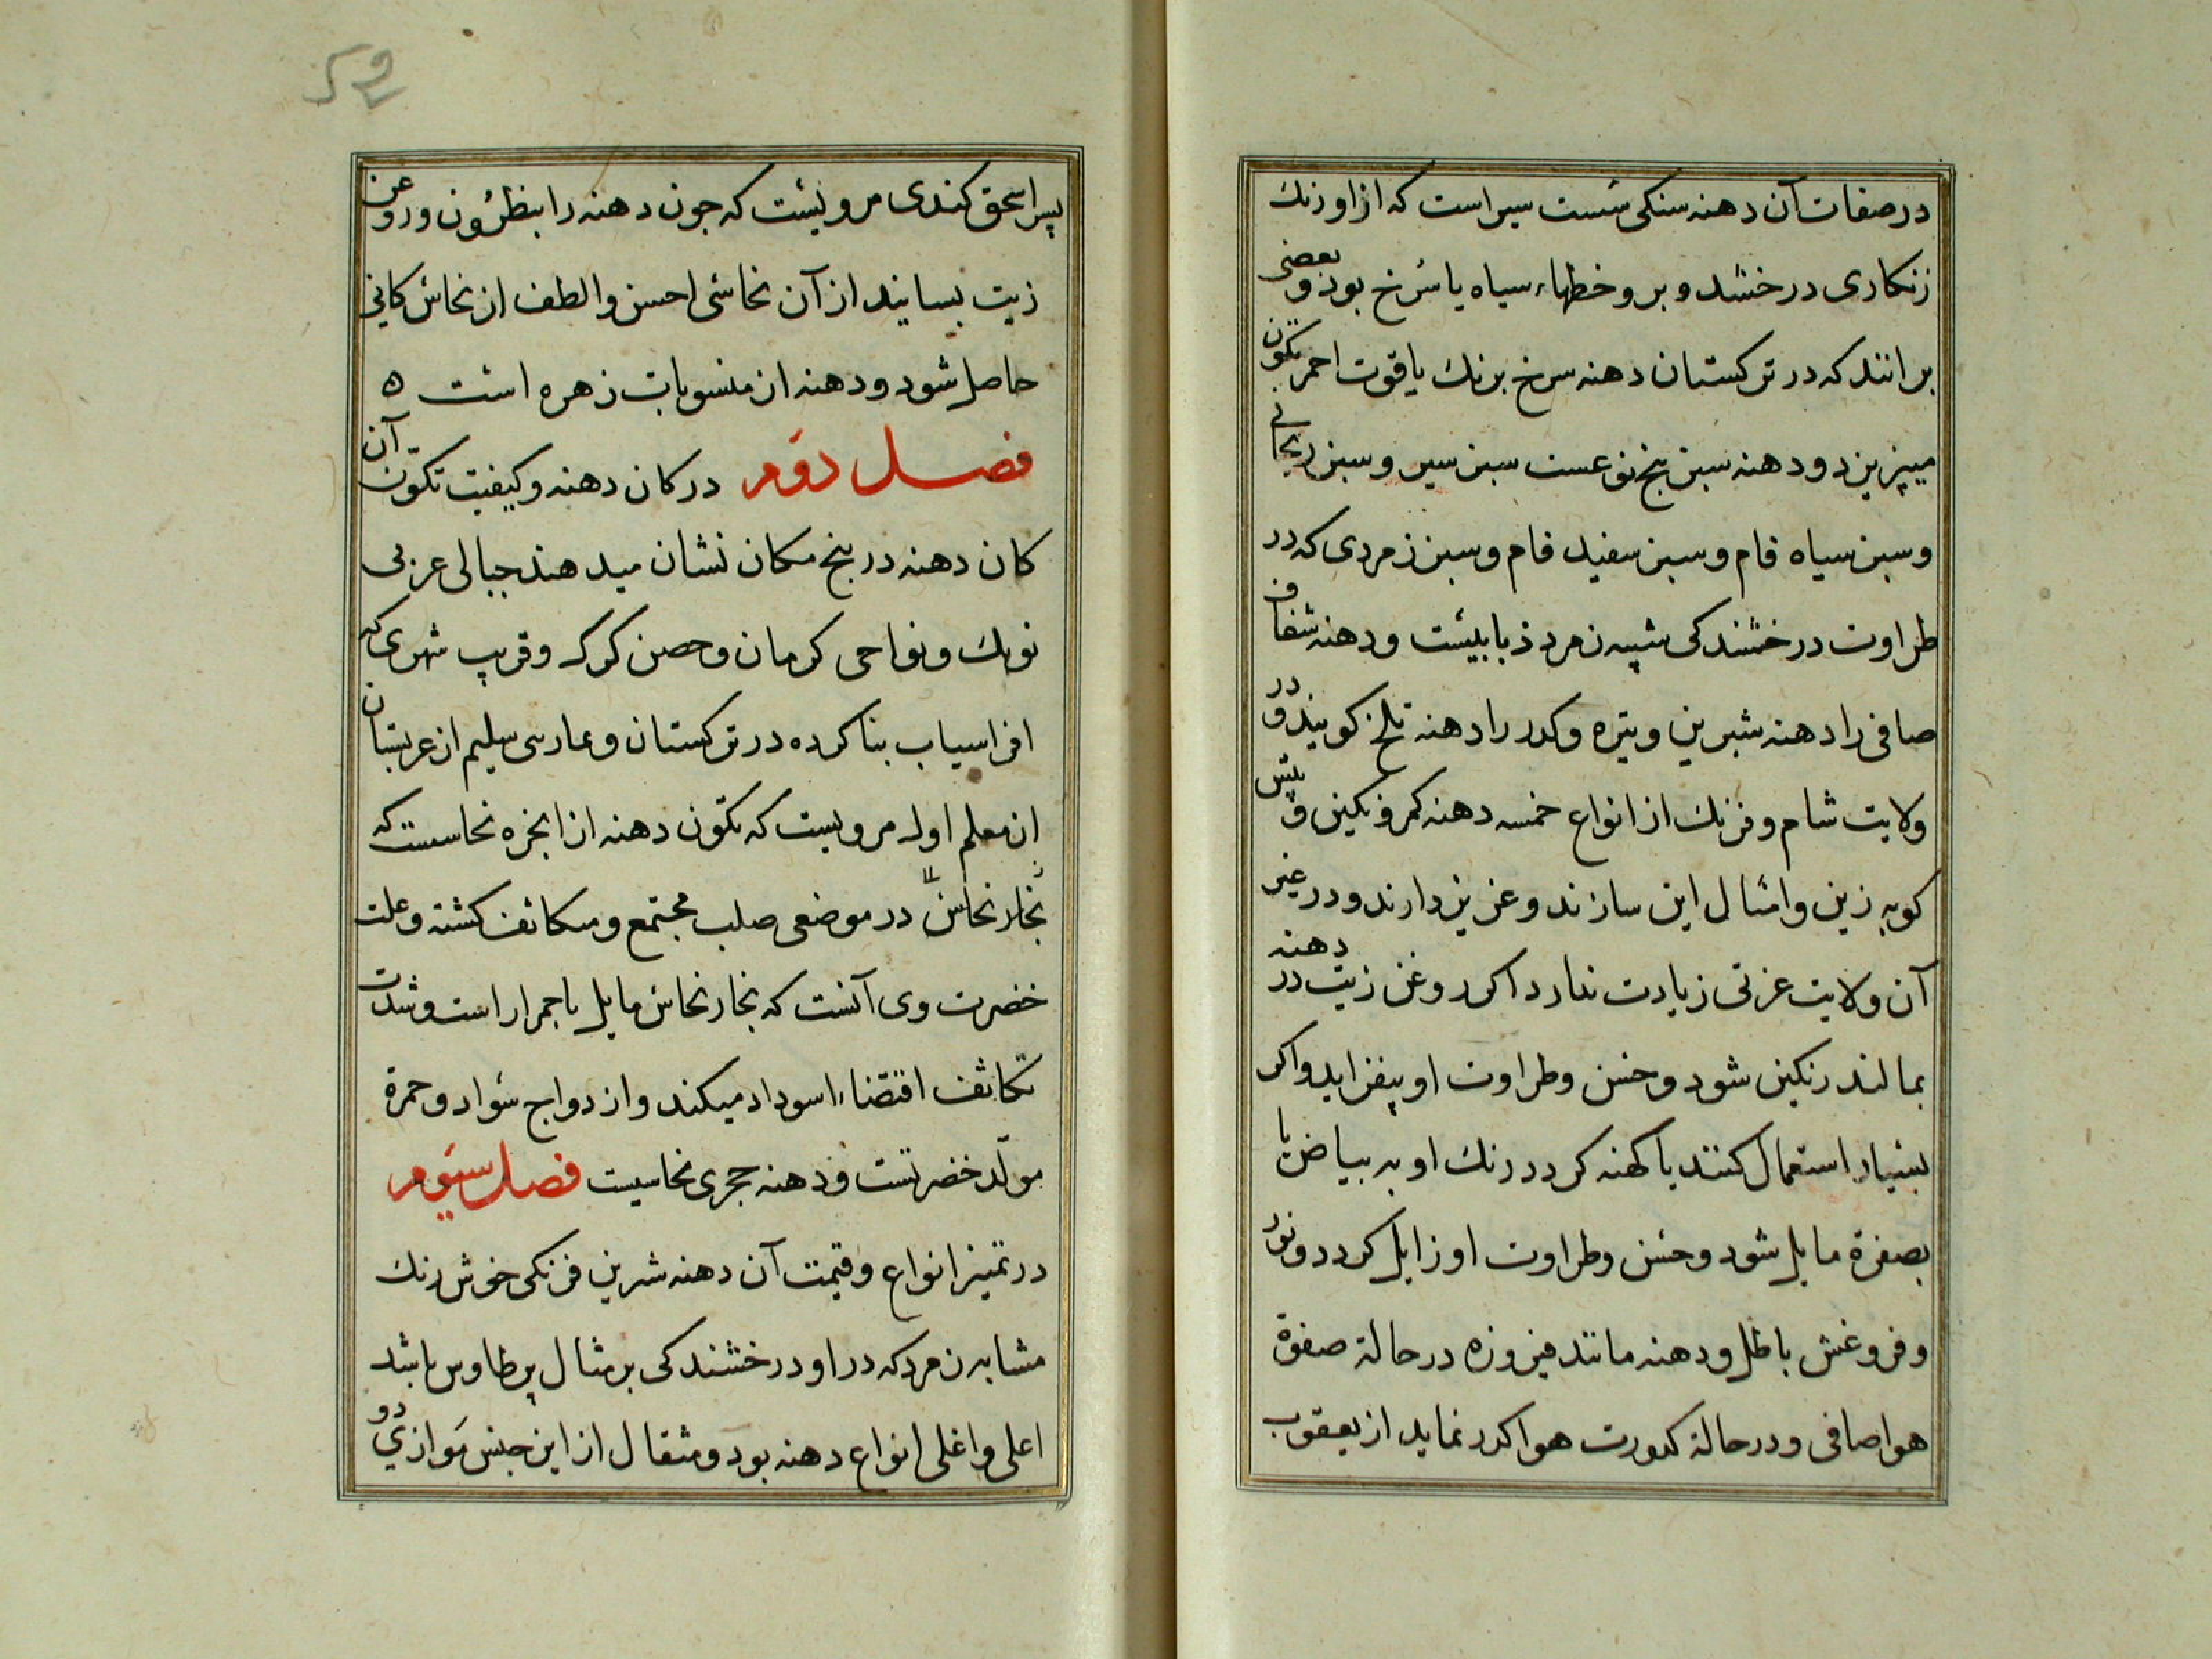 در صفات آن دهنه سنكی سست سبز است كه از او رنك
زنكاری درخشد و بر و خطهاء سیاه یا سرخ بود و بعضی
برانند كه در تركستان دهنه سرخ برنك یاقوت احمر تكون
میپزیزد و دهنه سبز پنج نوعست سبز سیر و سبز ریحانی
و سبز سیاه فام و سبز سفید فام و سبز زمردی كه در
طراوت درخشندكی شبیه زمرد ذبابیست و دهنه شفاف
صافی را دهنه شیرین و تیره و كدر را دهنه تلخ كویند و در
ولایت شام و فرنك از انواع خمسه دهنه كمر و نكین و پیش
كوبه زین و امثال این سازند و عزیز دارند و در غیر
آن ولایت عزتی زیادت ندارد اكر روغن زیت در دهنه
بمالند رنكین شود و حسن و طراوت او بیفزاید و اكر
بسیار استعمال كنند یا كهنه كردد رنك او به بیاض یا
بصفرة مایل شود و حسن و طراوت او زایل كردد و نور
و فروغش باطل و دهنه مانند فیروزه در حالة صفوة
هوا صافی و در حالة كدورت هوا كدر نماید از یعقوب
پسر اسحق كندی مرویست كه جون دهنه را بنطرون و روغن
زیت بسایند از آن نحاسی احسن و الطف از نحاس كانی
حاصل شود و دهنه از منسوبات زهره است ه
فصل دوم در كان دهنه و كیفیت تكون آن
كان دهنه در پنج مكان نشان میدهند جبالی عربی
نوبك و نواحی كرمان و حصن كرك و قریب شهری كه
افراسیاب بنا كرده در تركستان و عارسی سلیم از عربستان
از معلم اول مرویست كه تكون دهنه از ابخره نحاسست كه
بخار نحاس در موضعی صلب مجتمع و متكاثف كشته و علت
خضرت وی آنست كه بخار نحاس مایل باحمرار است و شدت
تكاثف اقتضاء اسوداد میكند و ازدواج سواد و حمرة
مولد خضرتست و دهنه حجری نحاسیست فصل سیوم
در تمیز انواع و قیمت آن دهنه شرین فرنكی خوش رنك
مشابه زمرد كه در او درخشندكی بر مثال پر طاوس باشد
اعلی و اغلی انواع دهنه بود و مثقال از این جنس موازی دو